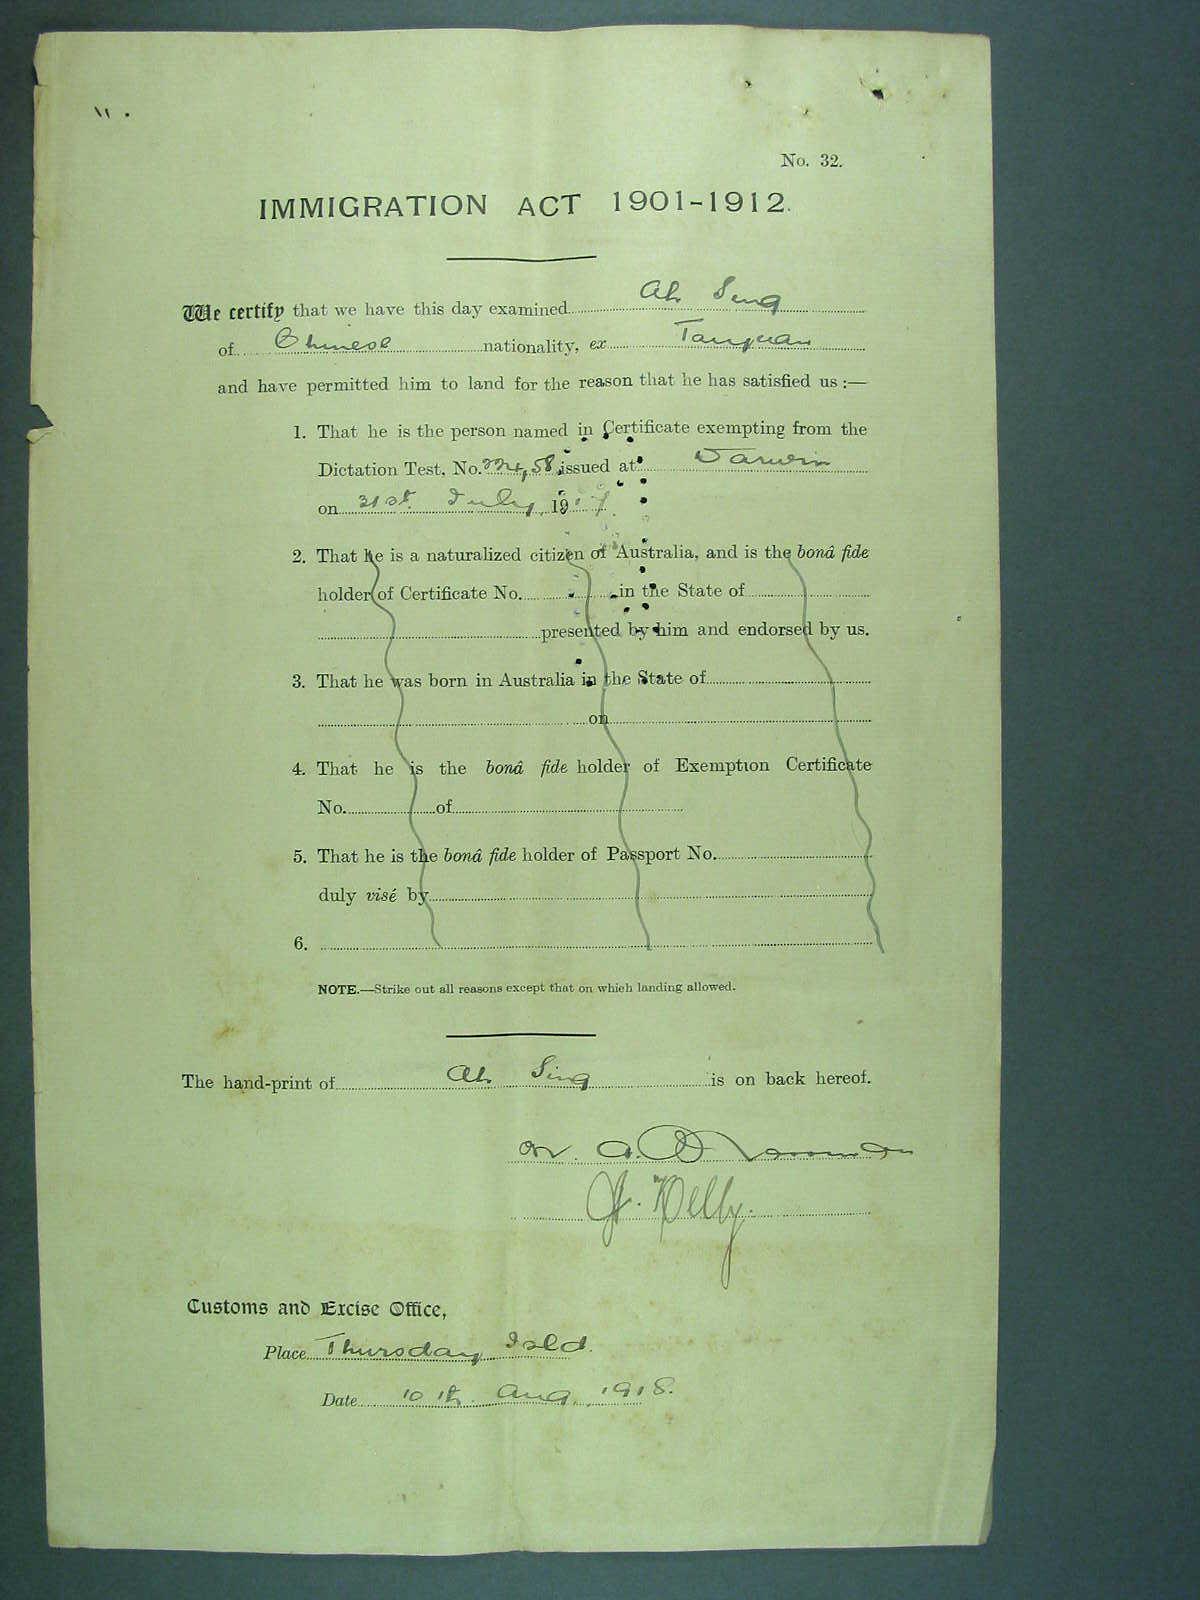 No. 32.
IMMIGRATION ACT 1901-1912.
We certify that we have this day examined Ah Sing
of Chinese nationality, ex Taiyuan
and have permitted him to land for the reason that he has satisfied us :—
1. That he is the person named in Certificate exempting from the
Dictation Test, No. issued at Darwin
on 31st July, 1917.
2. That he is a naturalized citizen of Australia, and is the bonâ fide
holder of Certificate No. in the State of
presented by him and endorsed by us.
3. That he was born in Australia in the State of
on
4. That he is the bonâ fide holder of Exemption Certificate
No. of
5. That he is the bonâ fide holder of Passport No.
duly visé by
6.
NOTE.—Strike out all reasons except that on which landing allowed.
The hand-print of Ah Sing is on back hereof.
J. Kelly.
Customs and Excise Office,
Place Thursday Isld.
Date 10th Aug, 1918.